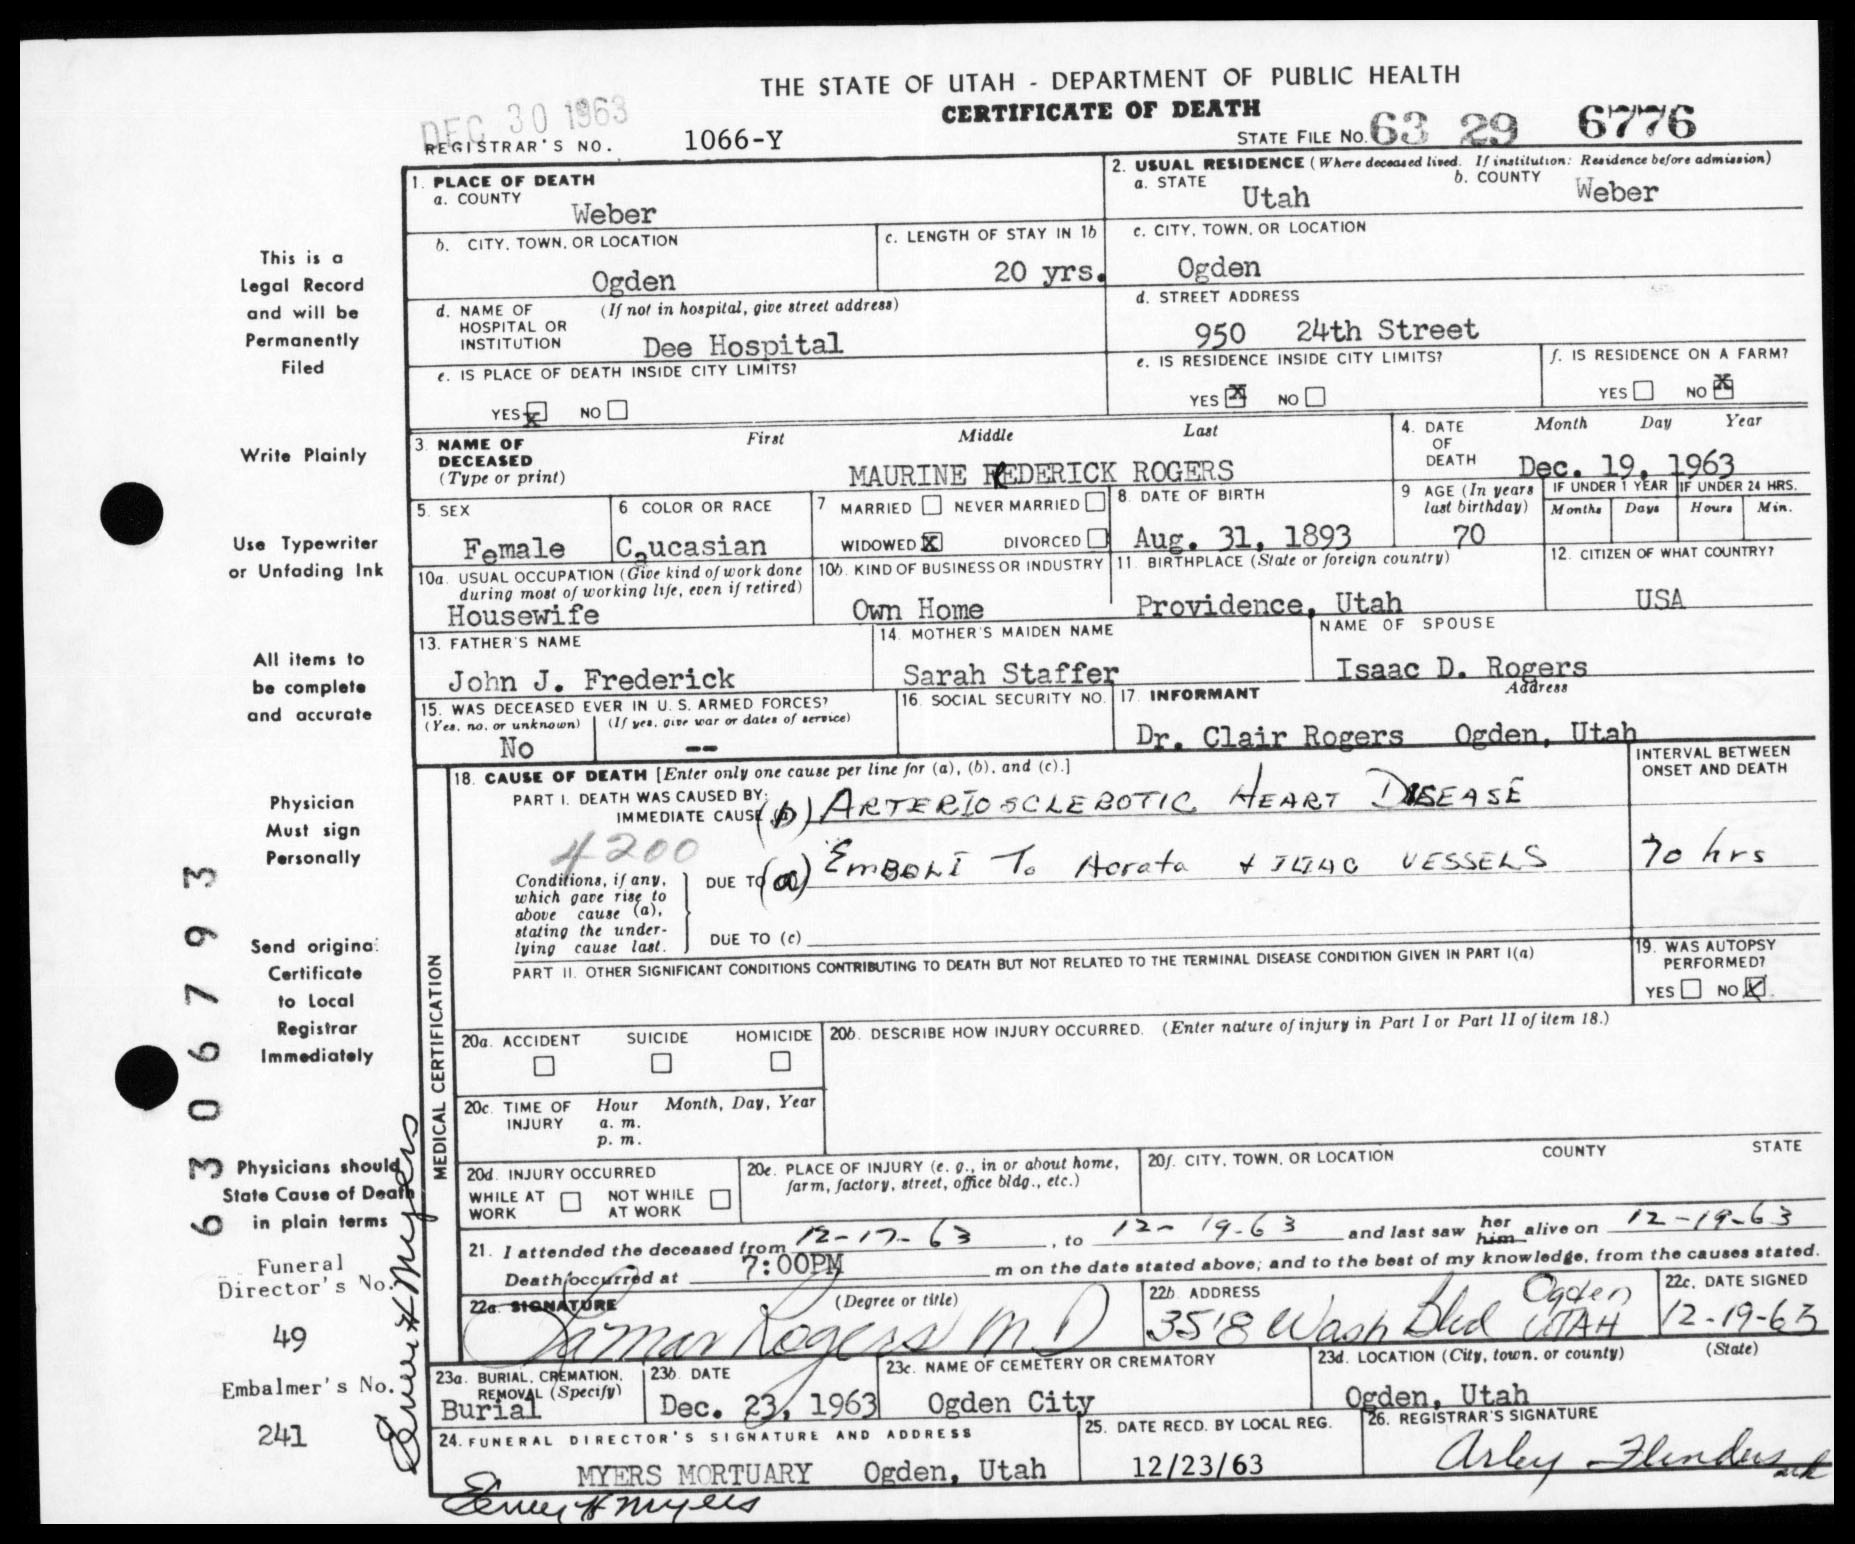 THE STATE OF UTAH - DEPARTMENT OF PUBLIC HEALTH
CERTIFICATE OF DEATH
DEC 30 1963
REGISTRAR'S NO. 1066-Y
STATE FILE NO. 63 29 6776
1. PLACE OF DEATH
a. COUNTY
Weber
2. USUAL RESIDENCE (Where deceased lived. If institution: Residence before admission)
a. STATE Utah
b. COUNTY Weber
b. CITY, TOWN, OR LOCATION
Ogden
c. LENGTH OF STAY IN 1b
20 yrs.
c. CITY, TOWN, OR LOCATION
Ogden
d. NAME OF HOSPITAL OR INSTITUTION (If not in hospital, give street address)
Dee Hospital
d. STREET ADDRESS
950 24th Street
e. IS PLACE OF DEATH INSIDE CITY LIMITS?
YES X NO
e. IS RESIDENCE INSIDE CITY LIMITS?
YES X NO
f. IS RESIDENCE ON A FARM?
YES NO X
3. NAME OF DECEASED (Type or print)
First Middle Last
MAURINE FREDERICK ROGERS
4. DATE OF DEATH
Month Day Year
Dec. 19, 1963
5. SEX
Female
6 COLOR OR RACE
Caucasian
7 MARRIED NEVER MARRIED
WIDOWED X DIVORCED
8. DATE OF BIRTH
Aug. 31, 1893
9 AGE (In years last birthday)
70
IF UNDER 1 YEAR
Months Days
IF UNDER 24 HRS.
Hours Min.
10a. USUAL OCCUPATION (Give kind of work done during most of working life, even if retired)
Housewife
10b. KIND OF BUSINESS OR INDUSTRY
Own Home
11. BIRTHPLACE (State or foreign country)
Providence, Utah
12. CITIZEN OF WHAT COUNTRY?
USA
13. FATHER'S NAME
John J. Frederick
14. MOTHER'S MAIDEN NAME
Sarah Staffer
NAME OF SPOUSE
Isaac D. Rogers
15. WAS DECEASED EVER IN U.S. ARMED FORCES?
(Yes, no, or unknown) (If yes, give war or dates of service)
No --
16. SOCIAL SECURITY NO.
17. INFORMANT Address
Dr. Clair Rogers Ogden, Utah
MEDICAL CERTIFICATION
18. CAUSE OF DEATH [Enter only one cause per line for (a), (b), and (c).]
INTERVAL BETWEEN ONSET AND DEATH
PART I. DEATH WAS CAUSED BY:
IMMEDIATE CAUSE (b) ARTERIOSCLEROTIC HEART DISEASE
4200
Conditions, if any, which gave rise to above cause (a), stating the underlying cause last.
DUE TO (a) EMBOLI To Aorata + ILIAC VESSELS
70 hrs
DUE TO (c)
PART II. OTHER SIGNIFICANT CONDITIONS CONTRIBUTING TO DEATH BUT NOT RELATED TO THE TERMINAL DISEASE CONDITION GIVEN IN PART I(a)
19. WAS AUTOPSY PERFORMED?
YES NO X
20a. ACCIDENT SUICIDE HOMICIDE
20b. DESCRIBE HOW INJURY OCCURRED. (Enter nature of injury in Part I or Part II of item 18.)
20c. TIME OF INJURY
Hour Month, Day, Year
a. m.
p. m.
20d. INJURY OCCURRED
WHILE AT WORK NOT WHILE AT WORK
20e. PLACE OF INJURY (e. g., in or about home, farm, factory, street, office bldg., etc.)
20f. CITY, TOWN, OR LOCATION COUNTY STATE
21. I attended the deceased from 12-17-63, to 12-19-63 and last saw her him alive on 12-19-63
Death occurred at 7:00PM m on the date stated above; and to the best of my knowledge, from the causes stated.
22a. SIGNATURE (Degree or title)
Lamar Rogers M D
22b. ADDRESS
3518 Wash Blvd Ogden UTAH
22c. DATE SIGNED
12-19-63
23a. BURIAL, CREMATION, REMOVAL (Specify)
Burial
23b. DATE
Dec. 23, 1963
23c. NAME OF CEMETERY OR CREMATORY
Ogden City
23d. LOCATION (City, town, or county) (State)
Ogden, Utah
24. FUNERAL DIRECTOR'S SIGNATURE AND ADDRESS
MYERS MORTUARY Ogden, Utah
25. DATE RECD. BY LOCAL REG.
12/23/63
26. REGISTRAR'S SIGNATURE
Arley Flinders
This is a
Legal Record
and will be
Permanently
Filed
Write Plainly
Use Typewriter
or Unfading Ink
All items to
be complete
and accurate
Physician
Must sign
Personally
Send original
Certificate
to Local
Registrar
Immediately
Physicians should
State Cause of Death
in plain terms
Funeral
Director's No.
49
Embalmer's No.
241
6306793